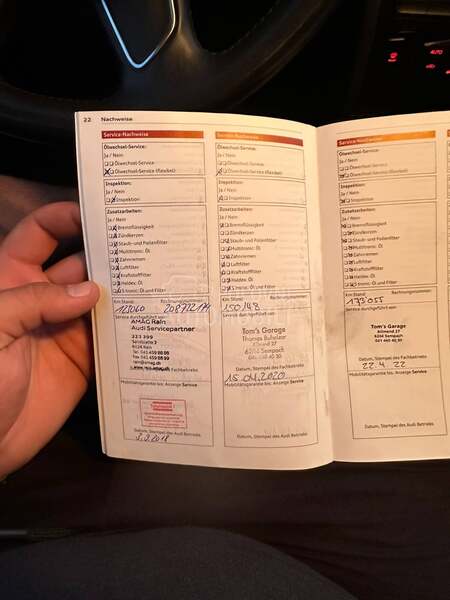 22 Nachweise
Service-Nachweise
Ölwechsel-Service:
Ja / Nein
Ölwechsel-Service
Ölwechsel-Service (flexibel)
Inspektion:
Ja / Nein
Inspektion
Zusatzarbeiten:
Ja / Nein
Bremsflüssigkeit
Zündkerzen
Staub- und Pollenfilter
Multitronic: Öl
Zahnriemen
Luftfilter
Kraftstofffilter
Haldex: Öl
S tronic: Öl und Filter
Km Stand: Rechnungsnummer:
123060
Service durchgeführt von:
AMAG Rain
Audi Servicepartner
6026 Rain
Datum, Stempel des Fachbetriebs
Mobilitätsgarantie bis: Anzeige Service
Datum, Stempel des Audi Betriebs
Service-Nachweise
Ölwechsel-Service:
Ja / Nein
Ölwechsel-Service
Ölwechsel-Service (flexibel)
Inspektion:
Ja / Nein
Inspektion
Zusatzarbeiten:
Ja / Nein
Bremsflüssigkeit
Zündkerzen
Staub- und Pollenfilter
Multitronic: Öl
Zahnriemen
Luftfilter
Kraftstofffilter
Haldex: Öl
S tronic: Öl und Filter
Km Stand: Rechnungsnummer:
150148
Service durchgeführt von:
Tom's Garage
Allmend 27
6204 Sempach
041 460 40 30
Datum, Stempel des Fachbetriebs
15.04.2020
Mobilitätsgarantie bis: Anzeige Service
Datum, Stempel des Audi Betriebs
Service-Nachweise
Ölwechsel-Service:
Ja / Nein
Ölwechsel-Service
Ölwechsel-Service (flexibel)
Inspektion:
Ja / Nein
Inspektion
Zusatzarbeiten:
Ja / Nein
Bremsflüssigkeit
Zündkerzen
Staub- und Pollenfilter
Multitronic: Öl
Zahnriemen
Luftfilter
Kraftstofffilter
Haldex: Öl
S tronic: Öl und Filter
Km Stand:
173055
Service durchgeführt von:
Tom's Garage
Allmend 27
6204 Sempach
041 460 40 30
Datum, Stempel des Fachbetriebs
22.4.22
Mobilitätsgarantie bis: Anzeige Service
Datum, Stempel des Audi Betriebs